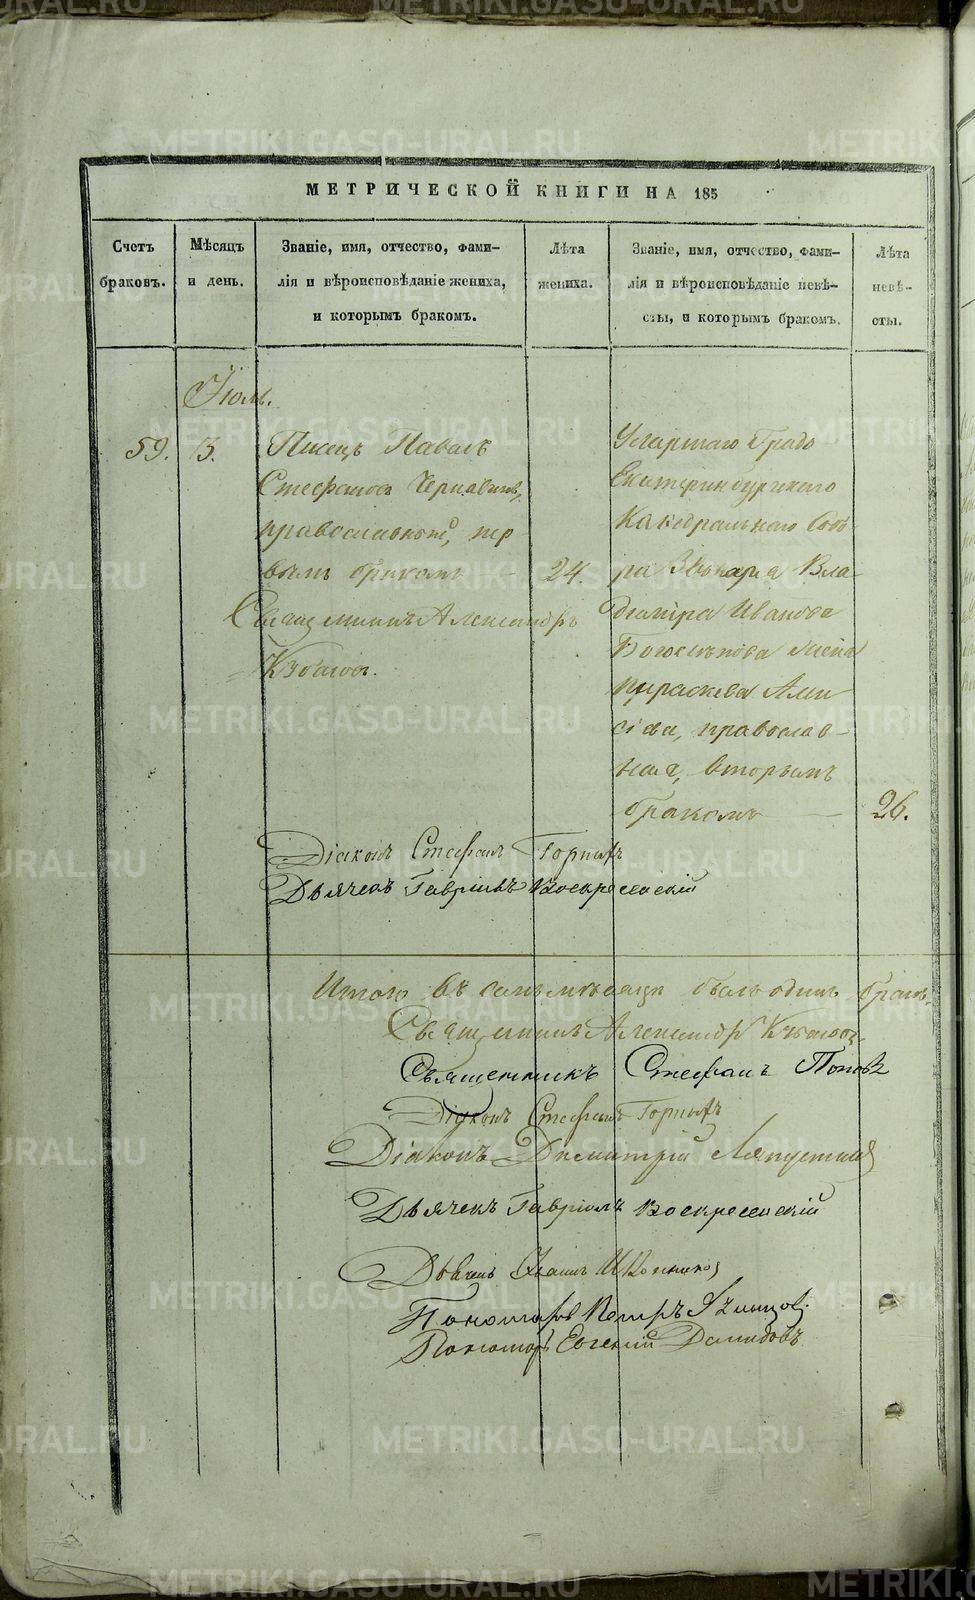 МЕТРИЧЕСКОЙ КНИГИ НА 185
Счетъ
браковъ.
Мѣсяцъ
и день.
Званіе, имя, отчество, фами-
лія и вѣроисповѣданіе жениха,
и которымъ бракомъ.
Лѣта
жениха.
Званіе, имя, отчество, фами-
лія и вѣроисповѣданіе невѣ-
сты, и которымъ бракомъ.
Лѣта
невѣ-
сты.
Іюль.
59.
3.
Писецъ Павелъ
Стефановъ Чернавинъ,
православный, пер
вымъ бракомъ
24.
Священникъ Александръ
Умершаго Градо
Екатеринбургскаго
Каѳедральнаго Собо
ра Звонаря Вла-
диміра Иванова
Богословова жена
Параскева Але
ксіева, православ-
ная, вторымъ
бракомъ
26.
Діаконъ Стефанъ Горныхъ
Дьячекъ Гавріилъ Воскресенскій
Итого въ семъ мѣсяцѣ былъ одинъ бракъ.
Священникъ Александръ
Священникъ Стефанъ Поповъ
Діаконъ Стефанъ Горныхъ
Діаконъ Димитрій Ляпустинъ
Дьячекъ Гавріилъ Воскресенскій
Дьячекъ Иванъ
Пономарь Петръ
Пономарь Евгеній Демидовъ
METRIKI.GASO-URAL.RU